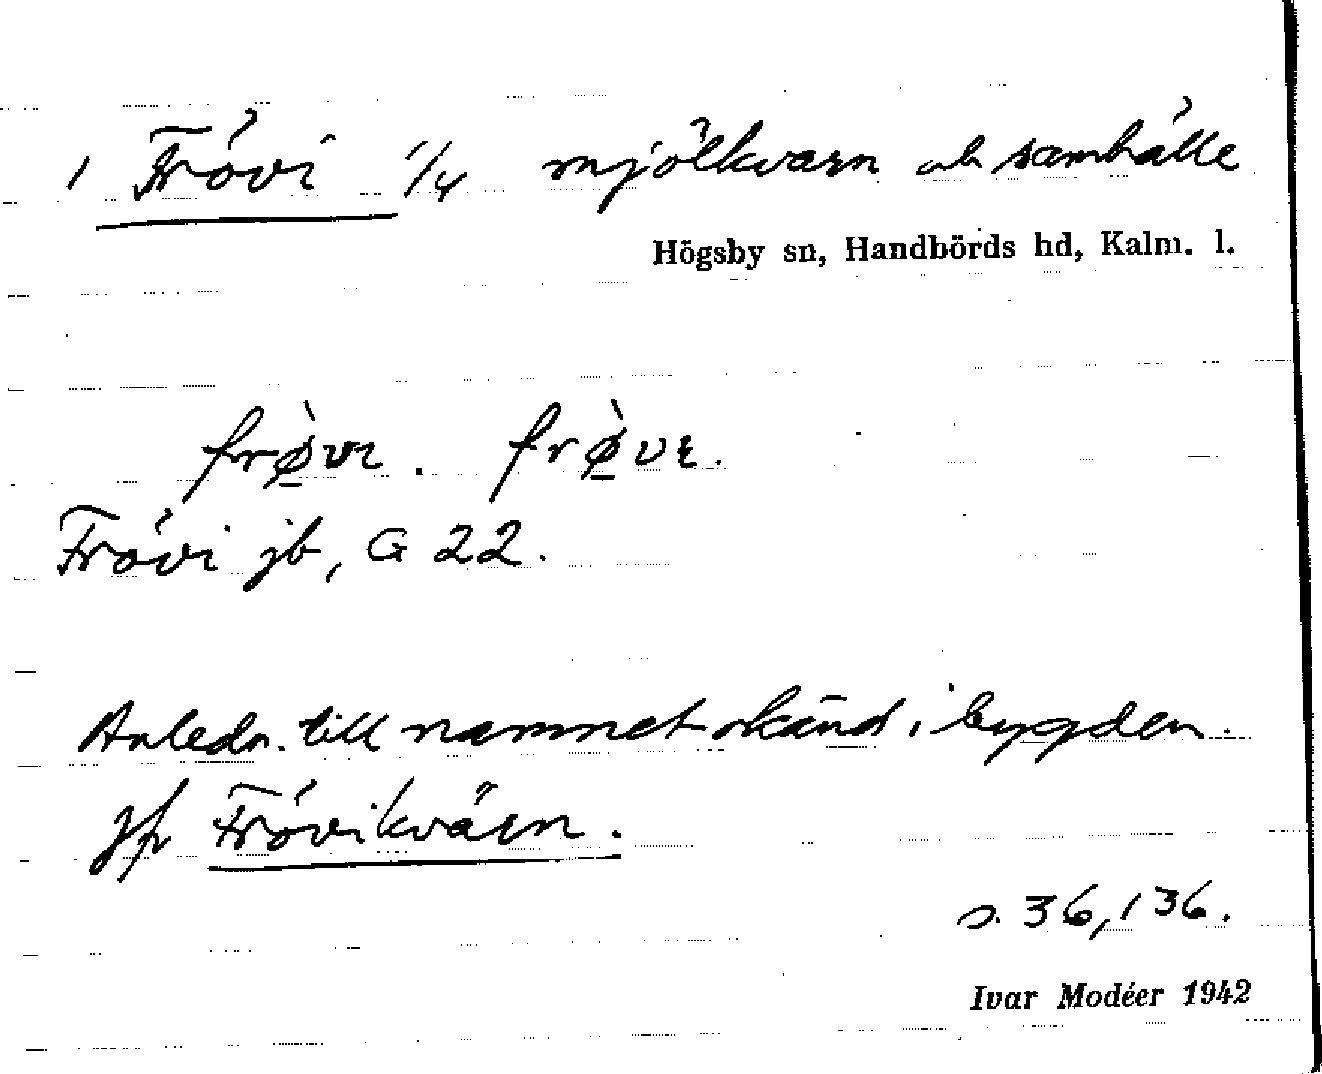 1 Frövi 1/4 mjölkvarn och samhälle
Högsby sn, Handbörds hd, Kalm. l.
frø̀vı. frø̀vı.
Frövi jb, G 22.
Anledn. till namnet okänd i bygden.
Jfr Frövikvärn.
s. 36, 136.
Ivar Modéer 1942